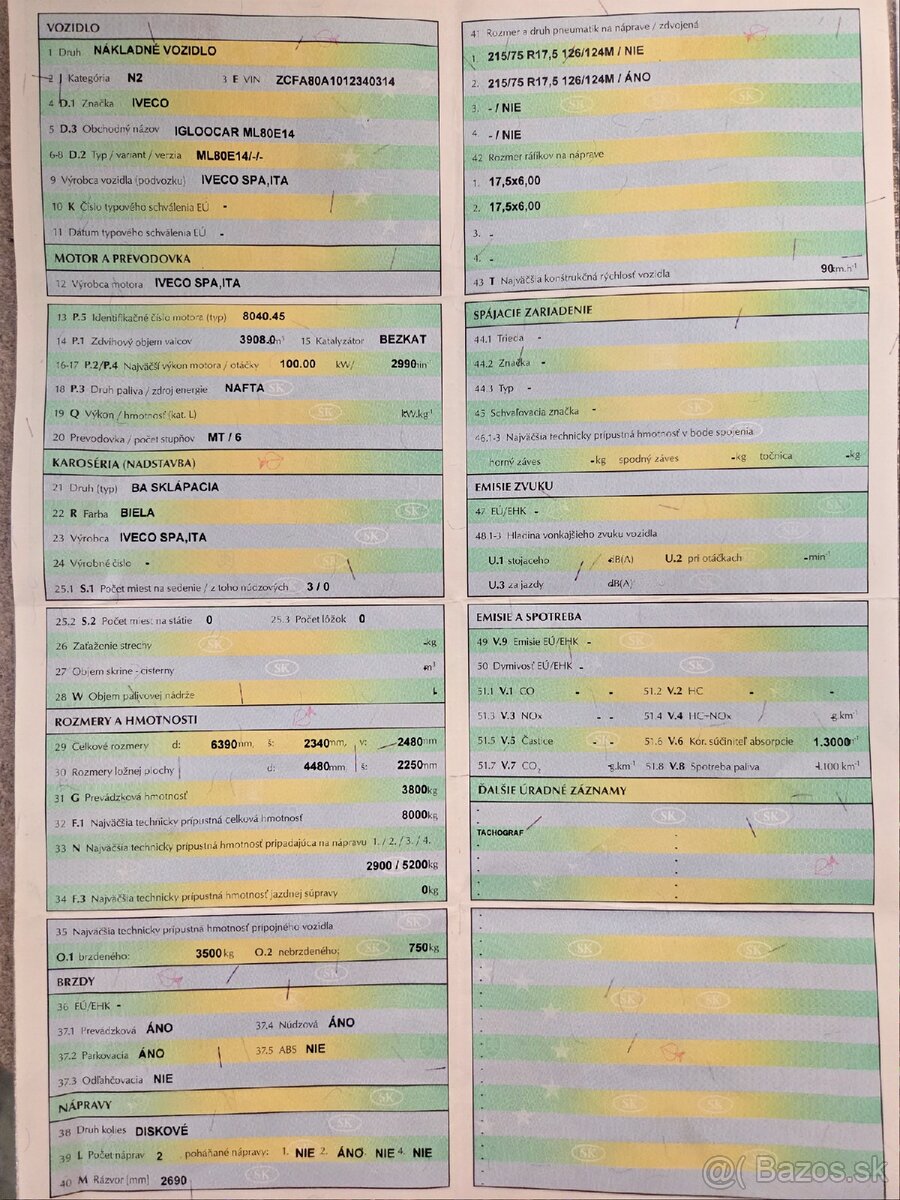 VOZIDLO
1 Druh NÁKLADNÉ VOZIDLO
2 J Kategória N2 3 E VIN ZCFA80A1012340314
4 D.1 Značka IVECO
5 D.3 Obchodný názov IGLOOCAR ML80E14
6-8 D.2 Typ / variant / verzia ML80E14/-/-
9 Výrobca vozidla (podvozku) IVECO SPA,ITA
10 K Číslo typového schválenia EÚ -
11 Dátum typového schválenia EÚ -
MOTOR A PREVODOVKA
12 Výrobca motora IVECO SPA,ITA
13 P.5 Identifikačné číslo motora (typ) 8040.45
14 P.1 Zdvihový objem valcov 3908.0 15 Katalyzátor BEZKAT
16-17 P.2/P.4 Najväčší výkon motora / otáčky 100.00 kW/ 2990
18 P.3 Druh paliva / zdroj energie NAFTA
19 Q Výkon / hmotnosť (kat. L) kW.kg⁻¹
20 Prevodovka / počet stupňov MT / 6
KAROSÉRIA (NADSTAVBA)
21 Druh (typ) BA SKLÁPACIA
22 R Farba BIELA
23 Výrobca IVECO SPA,ITA
24 Výrobné číslo -
25.1 S.1 Počet miest na sedenie / z toho núdzových 3 / 0
25.2 S.2 Počet miest na státie 0 25.3 Počet lôžok 0
26 Zaťaženie strechy -kg
27 Objem skrine - cisterny -m³
28 W Objem palivovej nádrže
ROZMERY A HMOTNOSTI
29 Celkové rozmery d: 6390mm, š: 2340mm, v: 2480mm
30 Rozmery ložnej plochy d: 4480mm, š: 2250mm
31 G Prevádzková hmotnosť 3800kg
32 F.1 Najväčšia technicky prípustná celková hmotnosť 8000kg
33 N Najväčšia technicky prípustná hmotnosť pripadajúca na nápravu 1. / 2. / 3. / 4.
2900 / 5200kg
34 F.3 Najväčšia technicky prípustná hmotnosť jazdnej súpravy 0kg
35 Najväčšia technicky prípustná hmotnosť prípojného vozidla
O.1 brzdeného: 3500kg O.2 nebrzdeného: 750kg
BRZDY
36 EÚ/EHK -
37.1 Prevádzková ÁNO 37.4 Núdzová ÁNO
37.2 Parkovacia ÁNO 37.5 ABS NIE
37.3 Odľahčovacia NIE
NÁPRAVY
38 Druh kolies DISKOVÉ
39 L Počet náprav 2 poháňané nápravy: 1. NIE 2. ÁNO NIE 4. NIE
40 M Rázvor [mm] 2690
41 Rozmer a druh pneumatík na náprave / zdvojená
1. 215/75 R17,5 126/124M / NIE
2. 215/75 R17,5 126/124M / ÁNO
3. - / NIE
4. - / NIE
42 Rozmer ráfikov na náprave
1. 17,5x6,00
2. 17,5x6,00
3. -
4. -
43 T Najväčšia konštrukčná rýchlosť vozidla 90km.h⁻¹
SPÁJACIE ZARIADENIE
44.1 Trieda -
44.2 Značka -
44.3 Typ -
45 Schvaľovacia značka -
46.1-3 Najväčšia technicky prípustná hmotnosť v bode spojenia
horný záves -kg spodný záves -kg točnica -kg
EMISIE ZVUKU
47 EÚ/EHK -
48.1-3 Hladina vonkajšieho zvuku vozidla
U.1 stojaceho dB(A) U.2 pri otáčkach -min⁻¹
U.3 za jazdy dB(A)
EMISIE A SPOTREBA
49 V.9 Emisie EÚ/EHK -
50 Dymivosť EÚ/EHK -
51.1 V.1 CO - - 51.2 V.2 HC - -
51.3 V.3 NOx - - 51.4 V.4 HC+NOx g.km⁻¹
51.5 V.5 Častice - - 51.6 V.6 Kor. súčiniteľ absorpcie 1.3000m⁻¹
51.7 V.7 CO₂ -g.km⁻¹ 51.8 V.8 Spotreba paliva -l.100 km⁻¹
ĎALŠIE ÚRADNÉ ZÁZNAMY
TACHOGRAF
@( Bazos.sk